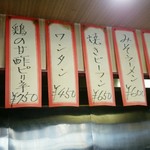 みそラーメン
¥600
焼きビーフン
¥650
ワンタン
¥450
鶏の甘酢ピリ辛
¥750